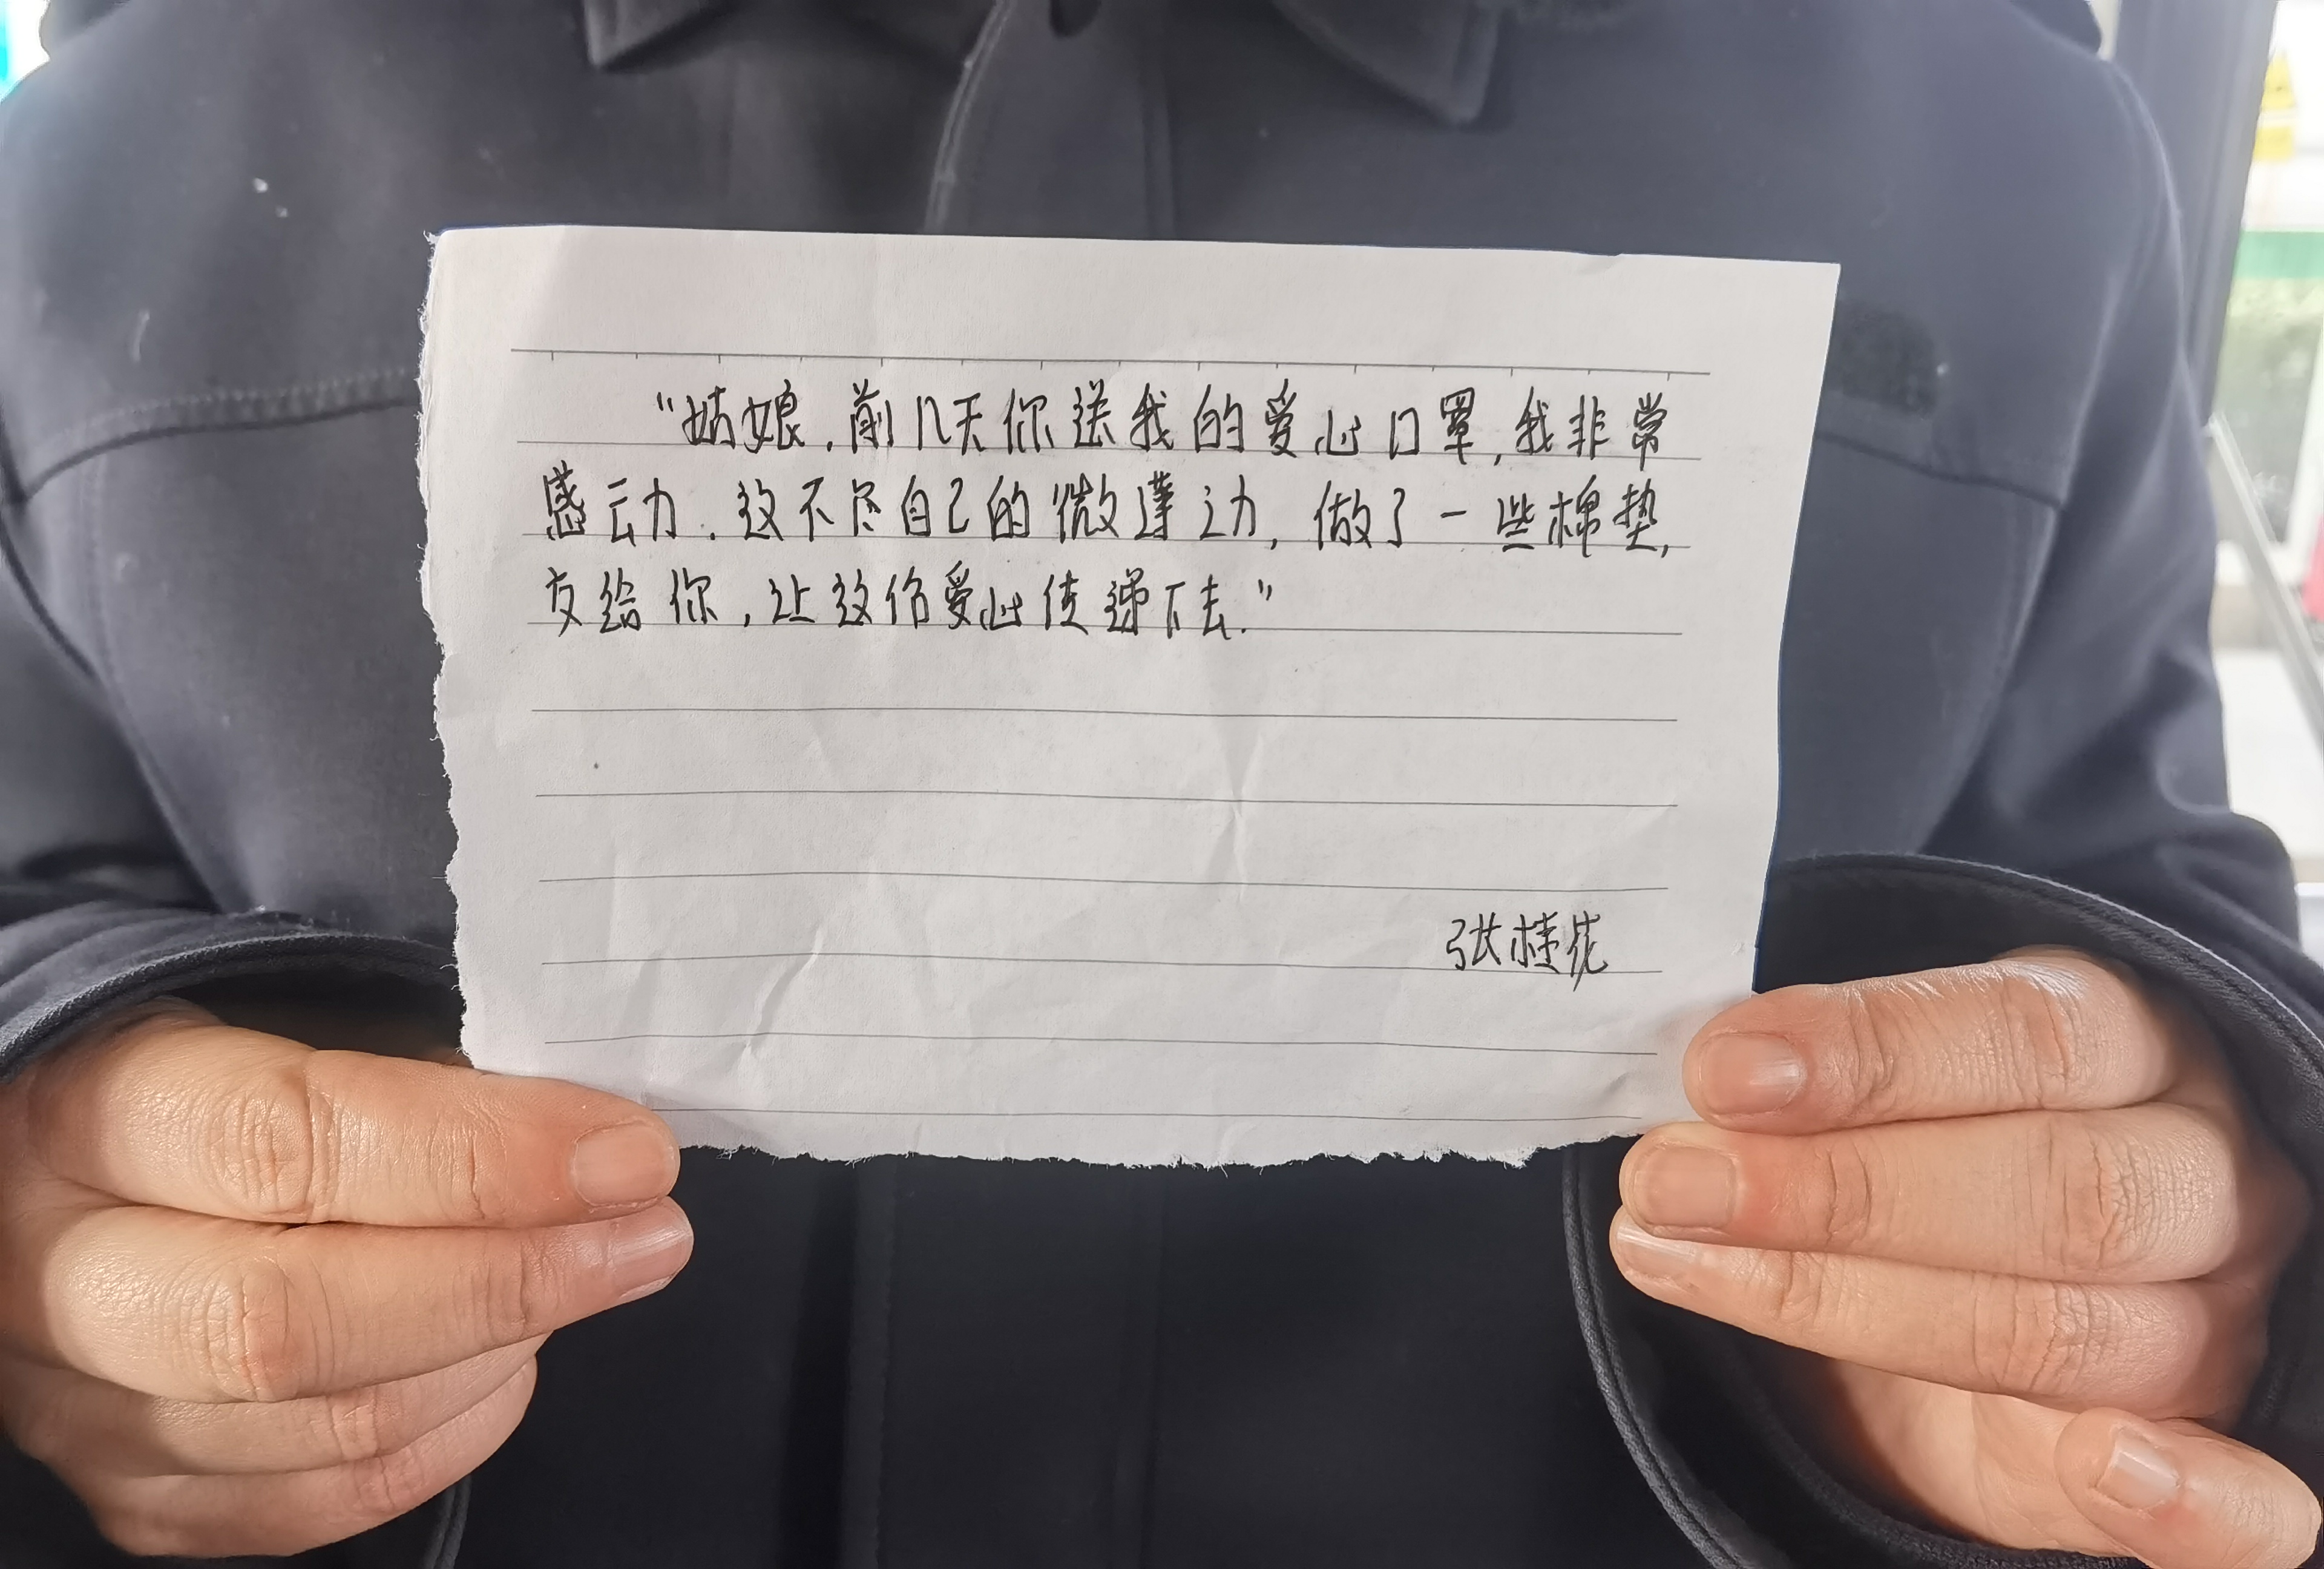 “姑娘，前几天你送我的爱心口罩，我非常
感动．这不尽自己的微薄之力，做了一些棉垫，
友给你，让这份爱心传递下去．”
张桂花